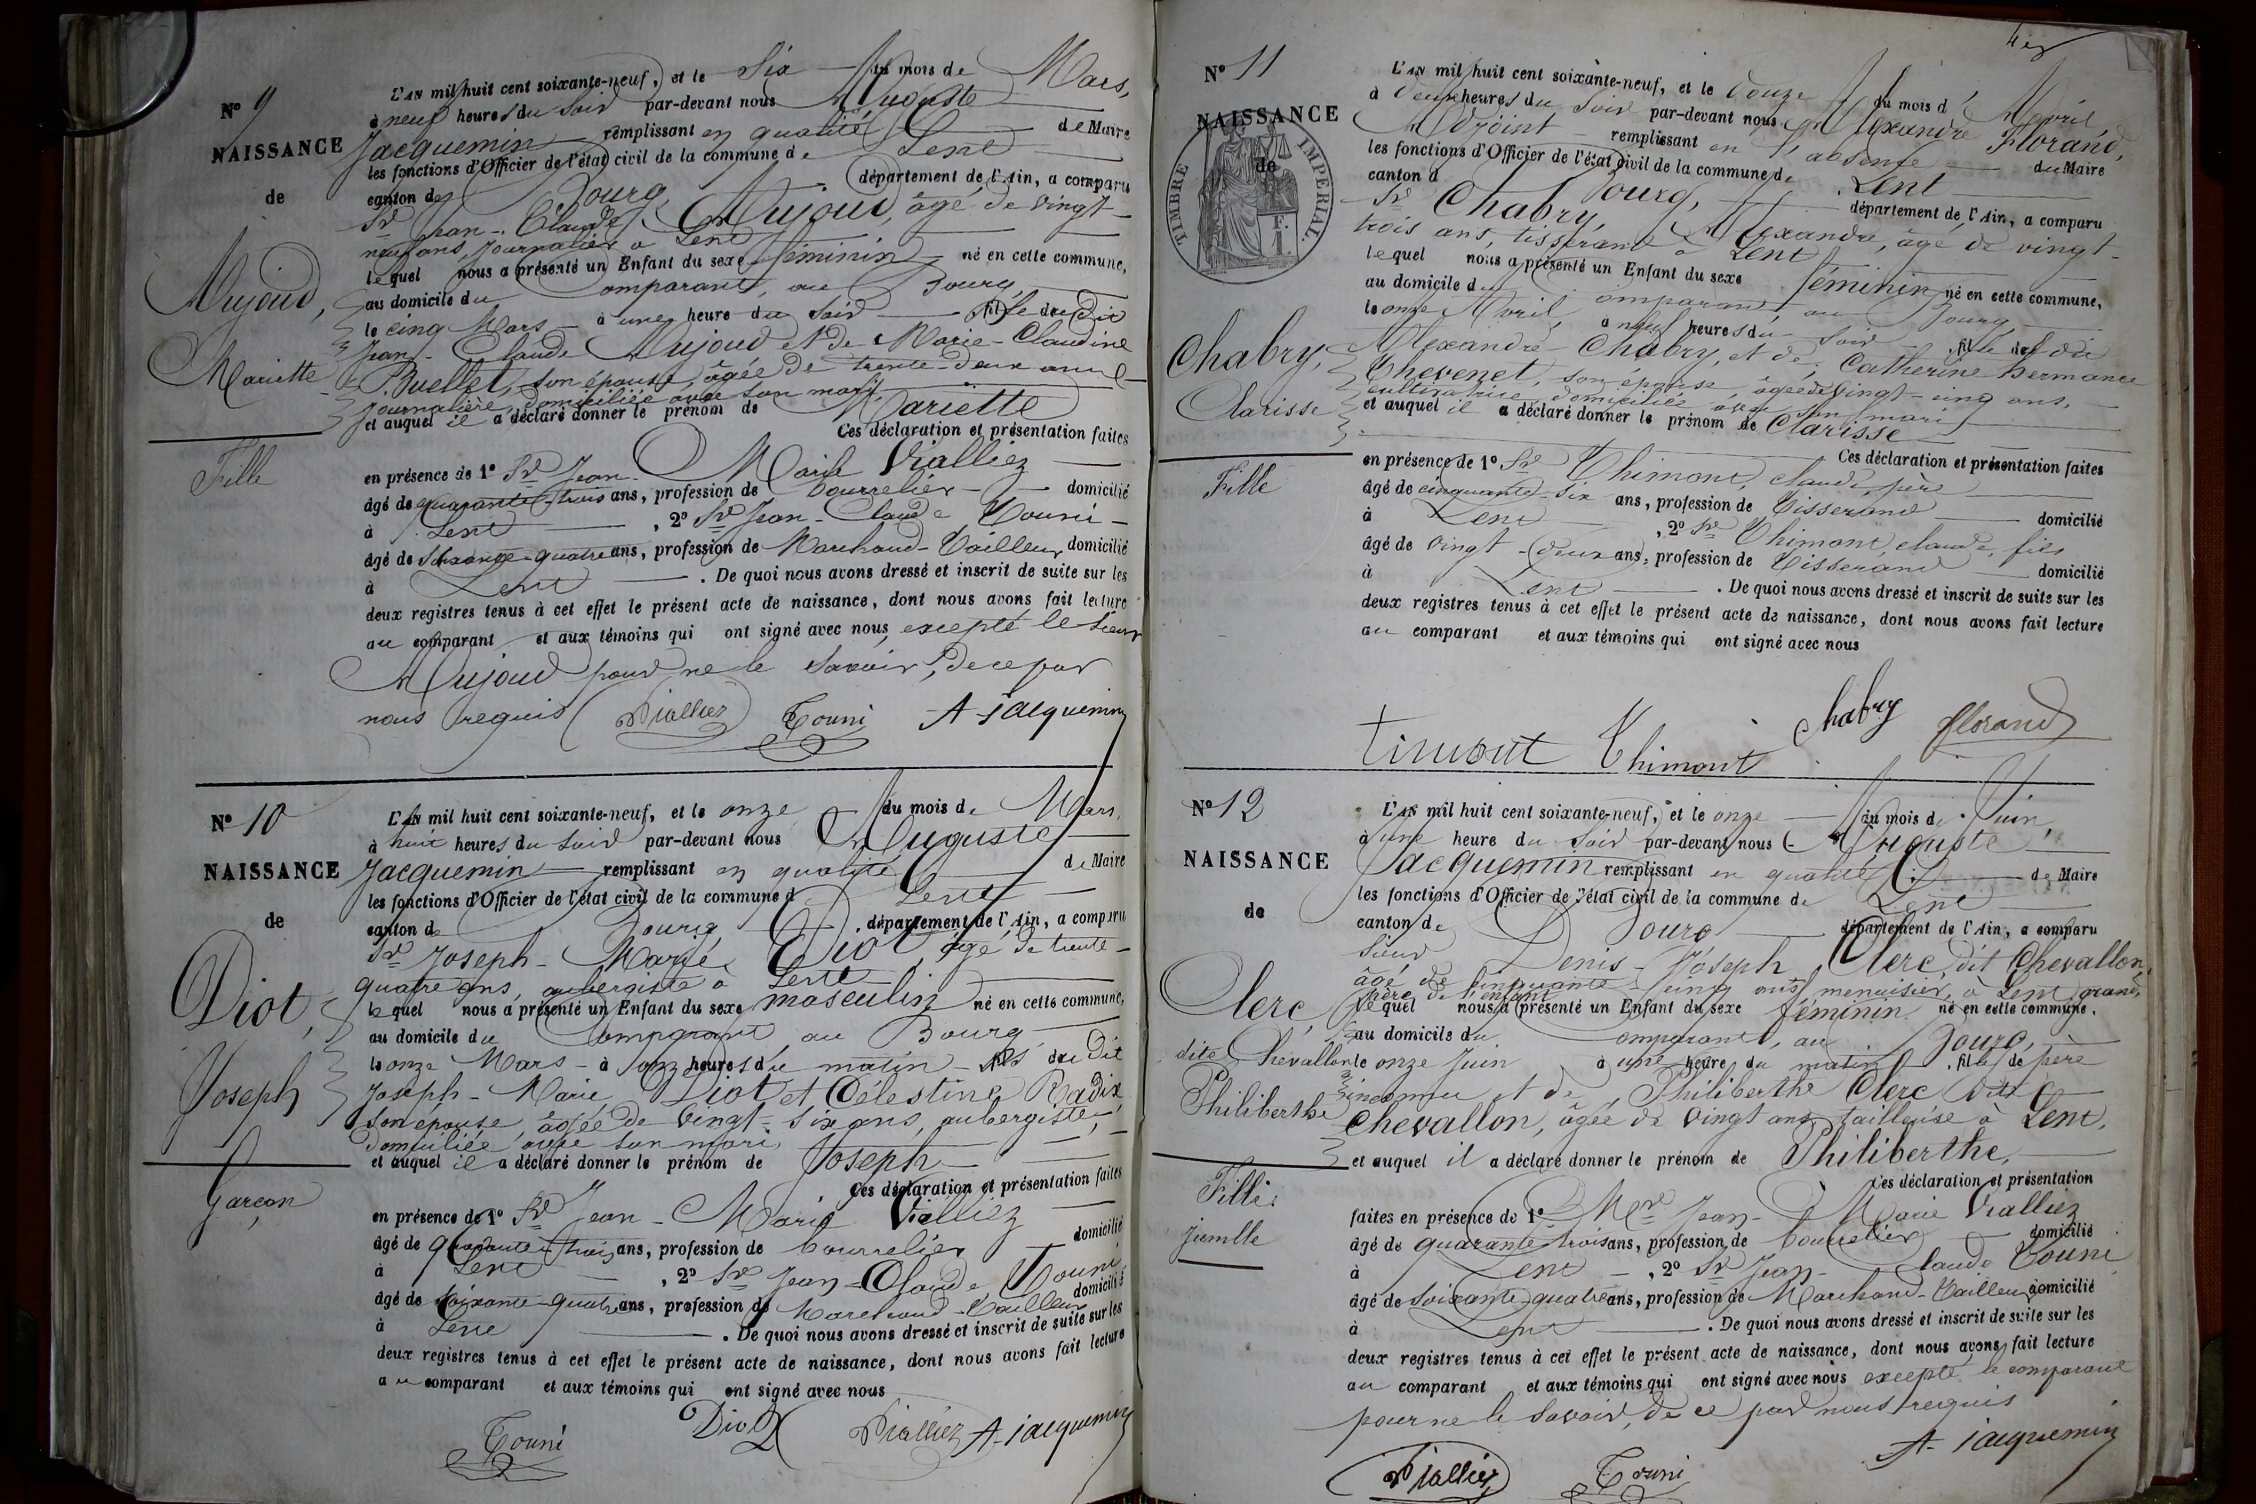 N° 9
NAISSANCE
de
Mujoud,
Mariette
Fille
L'AN mil huit cent soixante-neuf, et le Six du mois de Mars,
à neuf heures du Soir par-devant nous Auguste
Jacquemin remplissant en qualité de Maire
les fonctions d'Officier de l'état civil de la commune de Lent
canton de Bourg, département de l'Ain, a comparu
Sr Jean-Claude Mujoud, âgé de vingt-
neuf ans, journalier à Lent
lequel nous a présenté un Enfant du sexe féminin né en cette commune,
au domicile du Comparant, au Bourg,
le cinq Mars à une heure du Soir fille du dit
Jean-Claude Mujoud et de Marie-Claudine
Buellet, son épouse, âgée de trente-deux ans
journalière domiciliée avec son mari,
et auquel il a déclaré donner le prénom de Mariette
Ces déclaration et présentation faites
en présence de 1° Sr Jean-Marie Vialliez
âgé de quarante-trois ans, profession de bourrelier domicilié
à Lent , 2° Sr Jean-Claude Touni
âgé de soixante-quatre ans, profession de Marchand-Tailleur domicilié
à Lent . De quoi nous avons dressé et inscrit de suite sur les
deux registres tenus à cet effet le présent acte de naissance, dont nous avons fait lecture
au comparant et aux témoins qui ont signé avec nous, excepté le Sieur
Mujoud pour ne le savoir, de ce par
nous requis Vialliez Touni A-jacquemin
N° 10
NAISSANCE
de
Diot,
Joseph
Garçon
L'AN mil huit cent soixante-neuf, et le onze du mois de Mars,
à huit heures du Soir par-devant nous Auguste
Jacquemin remplissant en qualité de Maire
les fonctions d'Officier de l'état civil de la commune d Lent
canton de Bourg, département de l'Ain, a comparu
Sr Joseph-Marie Diot, âgé de trente-
quatre ans, aubergiste à Lent
lequel nous a présenté un Enfant du sexe masculin né en cette commune,
au domicile du Comparant au Bourg
le onze Mars à onze heures du matin fils du dit
Joseph-Marie Diot et Célestine Radix
son épouse, âgée de vingt-six ans, aubergiste,
domiciliée avec son mari,
et auquel il a déclaré donner le prénom de Joseph
Ces déclaration et présentation faites
en présence de 1° Sr Jean-Marie Vialliez
âgé de quarante-trois ans, profession de bourrelier domicilié
à Lent , 2° Sr Jean-Claude Touni
âgé de soixante-quatre ans, profession de Marchand-Tailleur domicilié
à Lent . De quoi nous avons dressé et inscrit de suite sur les
deux registres tenus à cet effet le présent acte de naissance, dont nous avons fait lecture
au comparant et aux témoins qui ont signé avec nous
Touni Diot Vialliez A-jacquemin
N° 11
NAISSANCE
de
TIMBRE IMPÉRIAL.
Chabry,
Clarisse
Fille
L'AN mil huit cent soixante-neuf, et le Douze du mois d'Avril
à Deux heures du Soir par-devant nous Alexandre Florand,
Adjoint remplissant en l'absence du Maire
les fonctions d'Officier de l'état civil de la commune de Lent
canton d Bourg, département de l'Ain, a comparu
Sr Chabry, Alexandre, âgé de vingt-
trois ans, tisserand à Lent
lequel nous a présenté un Enfant du sexe féminin né en cette commune,
au domicile du Comparant, au Bourg,
le onze Avril, à neuf heures du Soir fille du dit
Alexandre Chabry, et de Catherine hermance
Thevenet, son épouse, âgée de vingt-cinq ans,
cultivatrice, domiciliée avec son mari
et auquel il a déclaré donner le prénom de Clarisse
Ces déclaration et présentation faites
en présence de 1° Sr Thimont, claude, père
âgé de cinquante-six ans, profession de Tisserand domicilié
à Lent , 2° Sr Thimont, claude, fils
âgé de vingt-deux ans, profession de Tisserand domicilié
à Lent . De quoi nous avons dressé et inscrit de suite sur les
deux registres tenus à cet effet le présent acte de naissance, dont nous avons fait lecture
au comparant et aux témoins qui ont signé avec nous
Thimont Chabry florand
N° 12
NAISSANCE
de
Clerc,
dite Chevallon
Philiberthe
Fille
jumelle
L'AN mil huit cent soixante-neuf, et le onze du mois de Juin,
à une heure du Soir par-devant nous Auguste
Jacquemin remplissant en qualité de Maire
les fonctions d'Officier de l'état civil de la commune de Lent
canton de Bourg département de l'Ain, a comparu
Sieur Denis-Joseph Clerc, dit Chevallon,
âgé de cinquante-cinq ans, menuisier, à Lent, grand
père de l'enfant
lequel nous a présenté un Enfant du sexe féminin né en cette commune.
au domicile du Comparant, au Bourg,
le onze Juin à une heure du matin, fille de père
inconnu et de Philiberthe Clerc dite
Chevallon, âgée de vingt ans, tailleuse à Lent,
et auquel il a déclaré donner le prénom de Philiberthe,
Ces déclaration et présentation
faites en présence de 1° Jean-Marie Vialliez
âgé de quarante-trois ans, profession de bourrelier domicilié
à Lent , 2° Sr Jean-Claude Touni
âgé de soixante-quatre ans, profession de Marchand-Tailleur domicilié
à Lent . De quoi nous avons dressé et inscrit de suite sur les
deux registres tenus à cet effet le présent acte de naissance, dont nous avons fait lecture
au comparant et aux témoins qui ont signé avec nous excepté le comparant
pour ne le savoir, de ce par nous requis
Vialliez Touni A-jacquemin